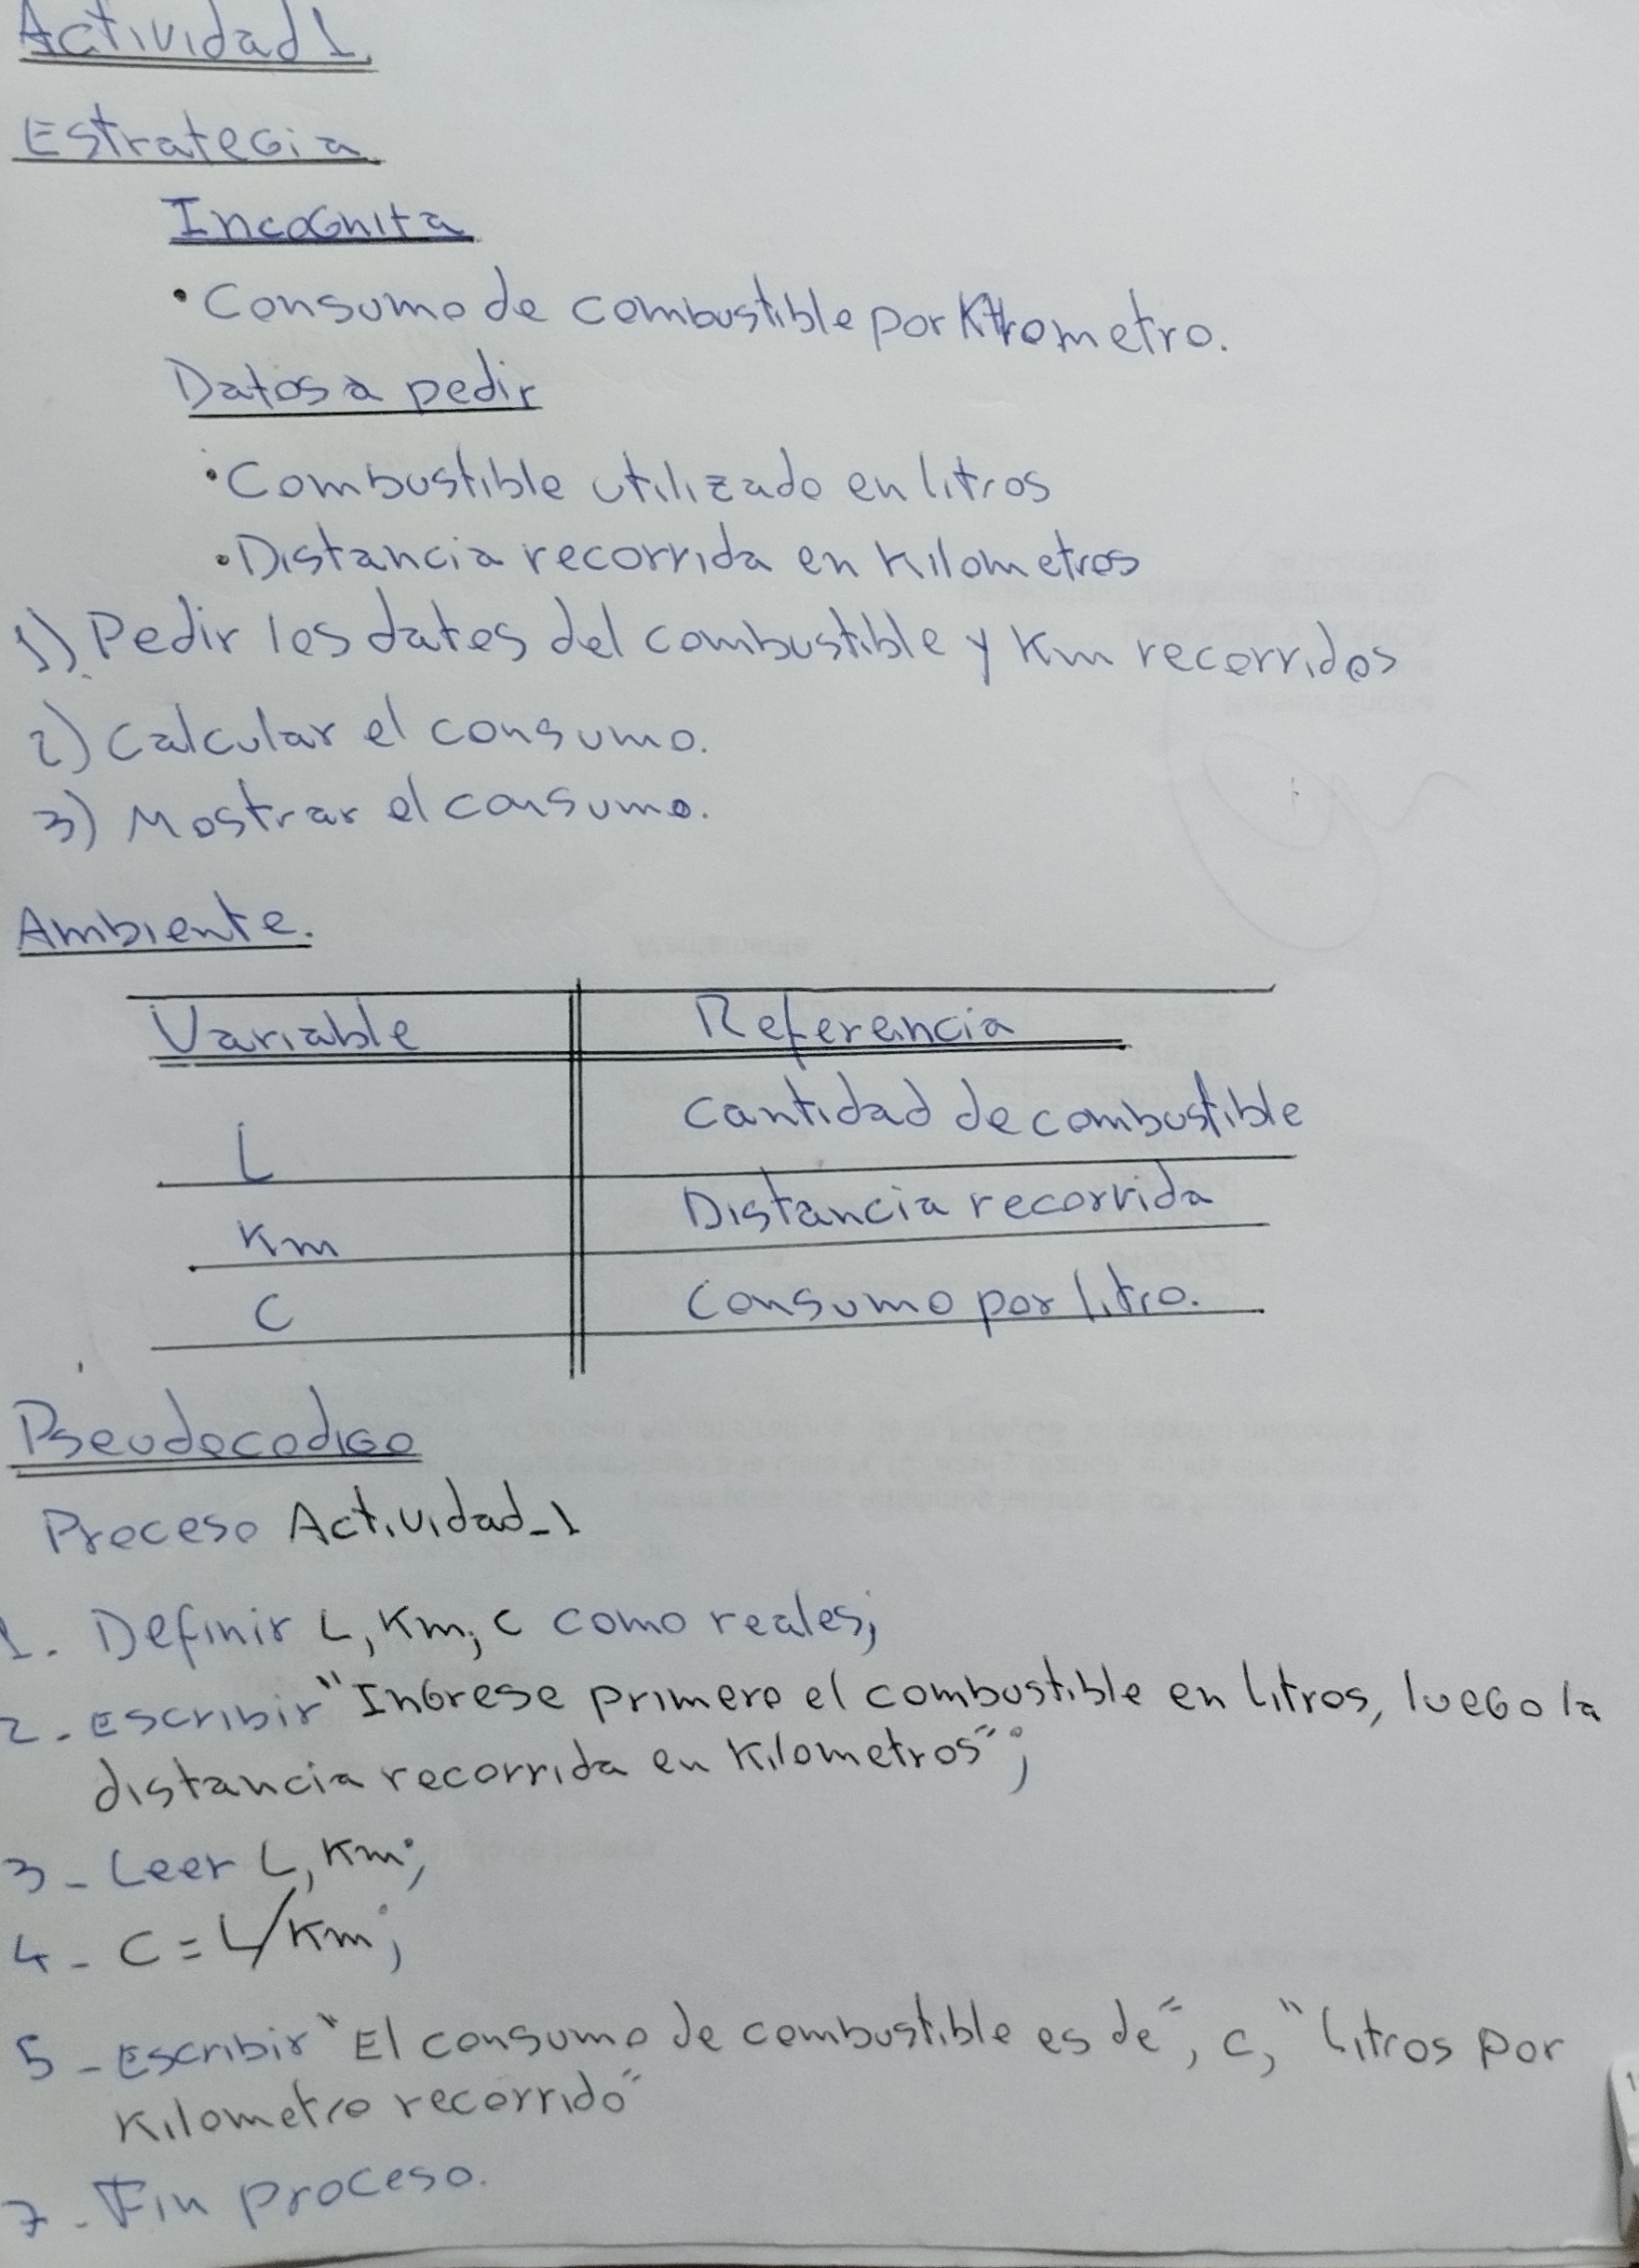 Actividad 1.
Estrategia
Incognita
• Consumo de combustible por Kilometro.
Datos a pedir
• Combustible utilizado en litros
• Distancia recorrida en kilometros
1) Pedir los datos del combustible y Km recorridos
2) Calcular el consumo.
3) Mostrar el consumo.
Ambiente.
Variable Referencia
L Cantidad de combustible
Km Distancia recorrida
C Consumo por litro.
Pseudocodigo
Proceso Actividad_1
1. Definir L, Km, C como reales;
2. Escribir "Ingrese primero el combustible en litros, luego la
distancia recorrida en Kilometros";
3 - Leer L, Km;
4 - C = L/Km;
5 - Escribir "El consumo de combustible es de", C, "litros por
Kilometro recorrido"
7 - Fin proceso.